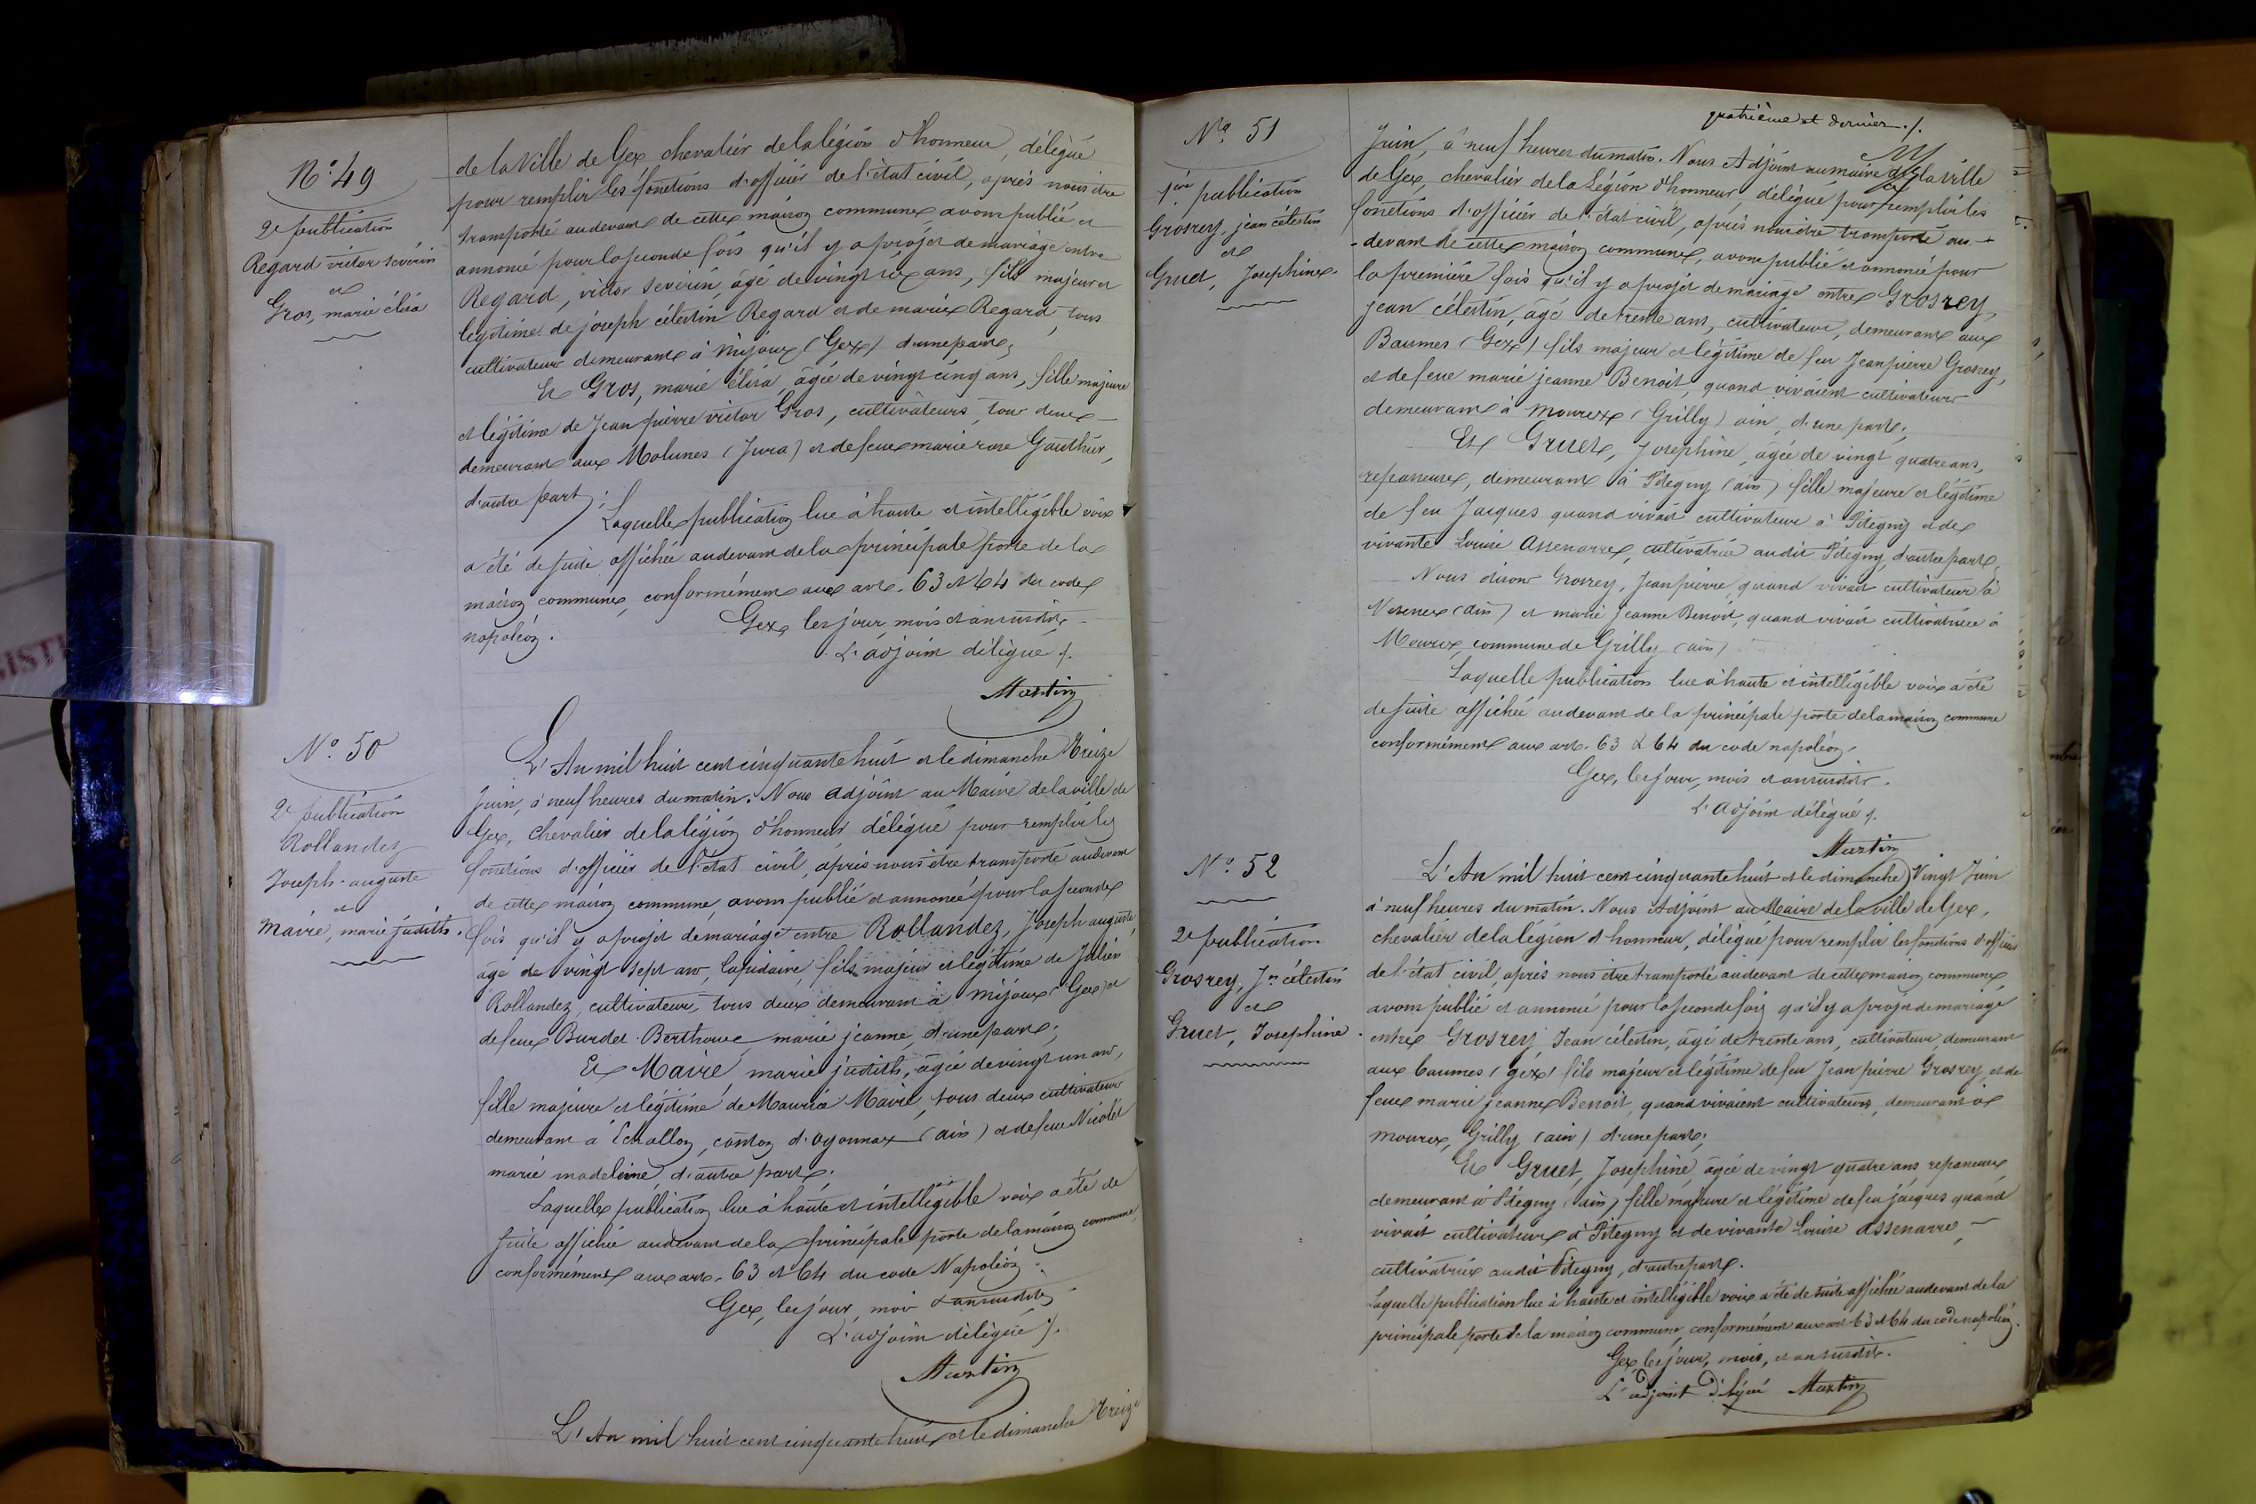 N.o 49
2e publication
Regard victor séverin
et
Gros, marie élisa
de la Ville de Gex chevalier de la légion d'honneur, délégué
pour remplir les fonctions d'officier de l'état civil, après nous être
transporté au devant de cette maison commune, avons publié et
annoncé pour la seconde fois qu'il y a projet de mariage entre
Regard, victor séverin, âgé de vingt six ans, fils majeur et
légitime de joseph célestin Regard et de marie Regard, tous
cultivateurs demeurant à mijoux (Gex) d'une part;
Et Gros, marie élisa, âgée de vingt cinq ans, fille majeure
et légitime de Jean pierre victor Gros, cultivateurs, tous deux
demeurant aux Molunes (Jura) et de feue marie rose Gauthier,
d'autre part;
Laquelle publication lue à haute et intelligible voix
a été de suite affichée au devant de la principale porte de la
maison commune, conformément aux art. 63 et 64 du code
napoléon.
Gex, les jour, mois et an susdits
L'adjoint délégué /.
Martin
N.o 50
2e publication
Rollandez
Joseph auguste
et
Maire, marie judith.
L'An mil huit cent cinquante huit et le dimanche Treize
Juin, à neuf heures du matin. Nous adjoint au Maire de la ville de
Gex, chevalier de la légion d'honneur délégué pour remplir les
fonctions d'officier de l'état civil, après nous être transporté au devant
de cette maison commune, avons publié et annoncé pour la seconde
fois qu'il y a projet de mariage entre Rollandez, Joseph auguste,
âgé de vingt sept ans, lapidaire, fils majeur et légitime de Julien
Rollandez, cultivateur, tous deux demeurant à mijoux (Gex) et
de feue Burdet Berthouc marie jeanne, d'une part;
Et Maire, marie judith, âgée de vingt un ans,
fille majeure et légitime de Maurice Maire, tous deux cultivateurs
demeurant à Echallon, canton d'oyonnax (ain) et de feue Nicolet
marie madeleine, d'autre part;
Laquelle publication lue à haute et intelligible voix a été de
suite affichée au devant de la principale porte de la maison commune,
conformément aux art. 63 et 64 du code Napoléon.
Gex, les jour, mois & an susdits
L'adjoint délégué /.
Martin
L'An mil huit cent cinquante huit et le dimanche Treize
quatrième et dernier /.
No 51
1ère publication
Grosrey, jean célestin
et
Gruet, Josephine.
Juin, à neuf heures du matin. Nous Adjoint au maire de la ville
de Gex, chevalier de la Légion d'honneur, délégué pour remplir les
fonctions d'officier de l'état civil, après nous être transporté au
devant de cette maison commune, avons publié et annoncé pour
la première fois qu'il y a projet de mariage entre Grosrey,
jean célestin, âgé de trente ans, cultivateur, demeurant aux
Baumes (Gex) fils majeur et légitime de feu Jean pierre Grosrey,
et de feue marie jeanne Benoit, quand vivaient cultivateurs
demeurant à mourex (Grilly) ain, d'une part;
Et Gruet, Josephine, âgée de vingt quatre ans,
repasseuse, demeurant à Pitegny (ain) fille majeure et légitime
de feu Jacques quand vivait cultivateur à Pitegny et de
vivante Louise Assenarre, cultivatrice audit Pitegny, d'autre part.
Nous disons Grosrey, Jean pierre, quand vivait cultivateur à
Vesenex (ain) et marie jeanne Benoit, quand vivait cultivatrice à
Mourex, commune de Grilly (ain)
Laquelle publication lue à haute et intelligible voix a été
de suite affichée au devant de la principale porte de la maison commune
conformément aux art. 63 & 64 du code napoléon.
Gex, les jour, mois et an susdits.
L'adjoint délégué /.
Martin
N.o 52
2e publication
Grosrey, Jn célestin
et
Gruet, Josephine.
L'An mil huit cent cinquante huit et le dimanche Vingt Juin
à neuf heures du matin. Nous Adjoint au Maire de la ville de Gex,
chevalier de la légion d'honneur, délégué pour remplir les fonctions d'officier
de l'état civil, après nous être transporté au devant de cette maison commune,
avons publié et annoncé pour la seconde fois qu'il y a projet de mariage
entre Grosrey Jean célestin, âgé de trente ans, cultivateur, demeurant
aux baumes (gex) fils majeur et légitime de feu Jean pierre Grosrey et de
feue marie jeanne Benoit, quand vivaient cultivateurs, demeurant à
mourex, Grilly (ain) d'une part;
Et Gruet, Josephine, âgée de vingt quatre ans repasseuse,
demeurant à Pitegny (ain) fille majeure et légitime de feu jacques quand
vivait cultivateur à Pitegny et de vivante Louise assenarre,
cultivatrice audit Pitegny, d'autre part.
Laquelle publication lue à haute et intelligible voix a été de suite affichée au devant de la
principale porte de la maison commune, conformément aux art 63 et 64 du code napoléon.
Gex, les jour, mois, et an susdits.
L'adjoint délégué Martin